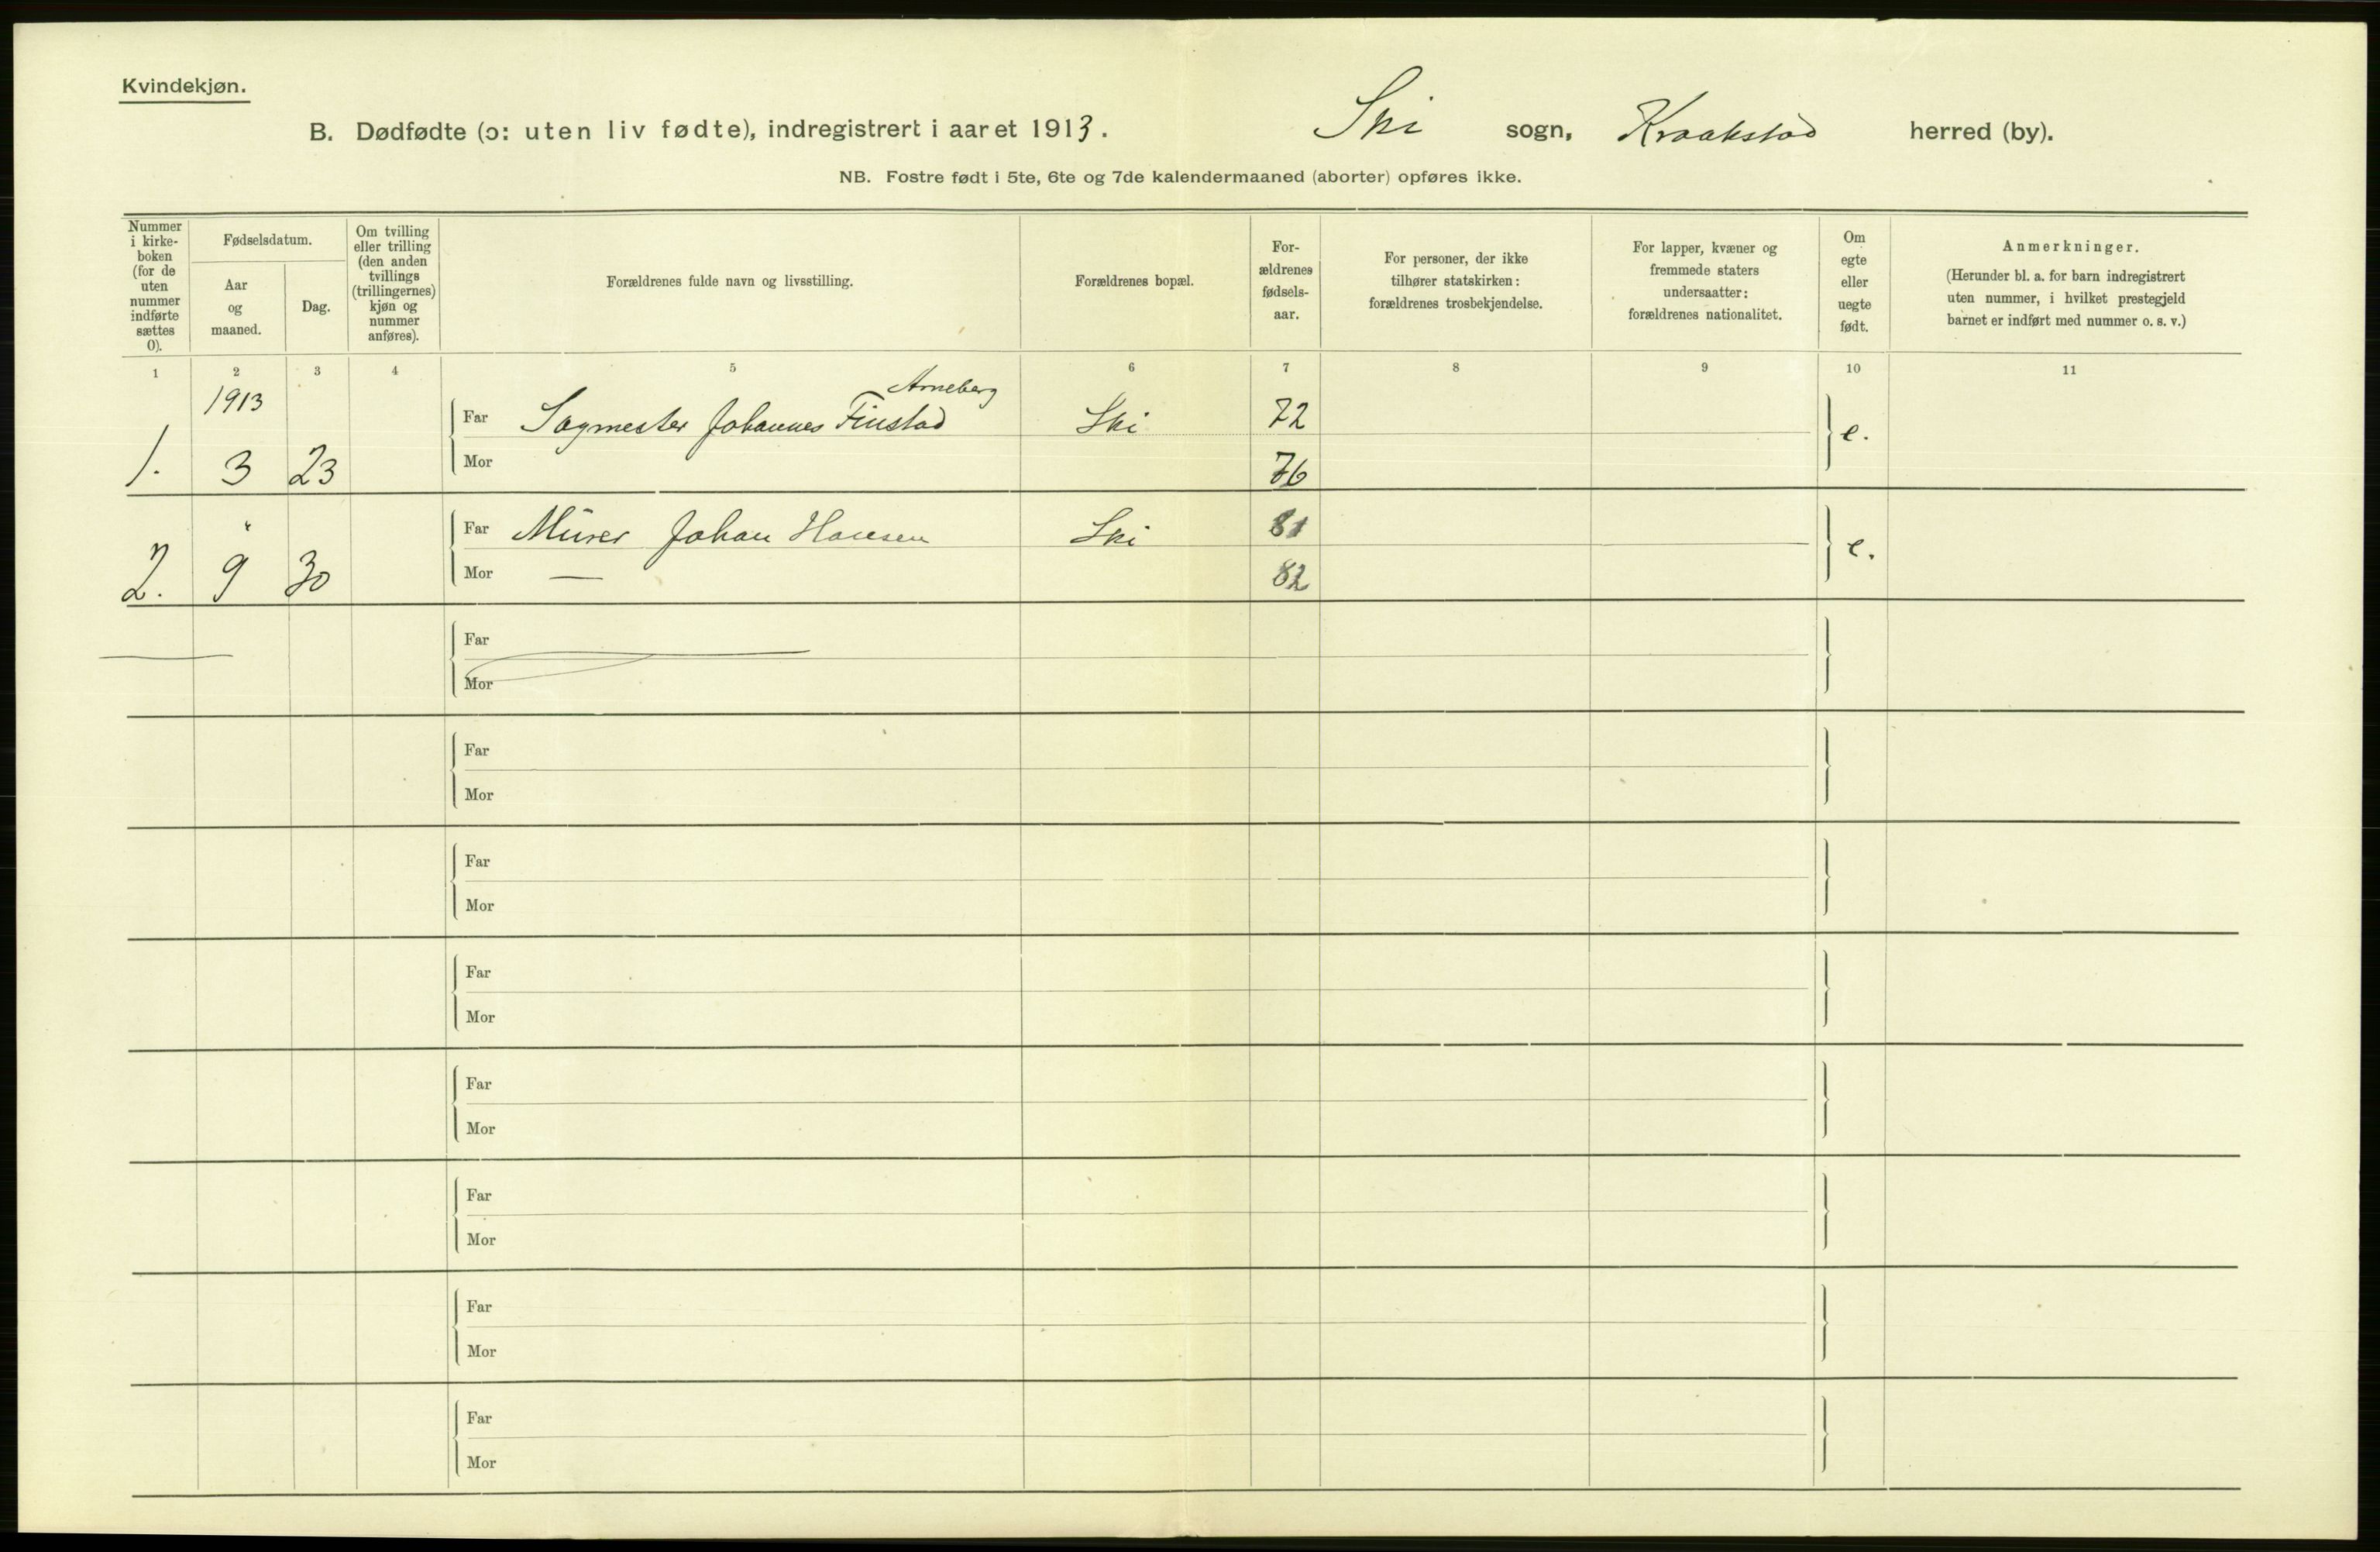 Kvindekjøn.
B. Dødfødte (ɔ: uten liv fødte), indregistrert i aaret 1913. Ski sogn, Kraakstad herred (by).
NB. Fostre født i 5te, 6te og 7de kalendermaaned (aborter) opføres ikke.
Nummer i kirke- boken (for de uten nummer indførte sættes 0).
Fødselsdatum.
Aar og maaned.
Dag.
Om tvilling eller trilling (den anden tvillings (trillingernes) kjøn og nummer anføres).
Forældrenes fulde navn og livsstilling.
Forældrenes bopæl.
For- ældrenes fødsels- aar.
For personer, der ikke tilhører statskirken: forældrenes trosbekjendelse.
For lapper, kvæner og fremmede staters undersaatter: forældrenes nationalitet.
Om egte eller uegte født.
Anmerkninger.
(Herunder bl. a. for barn indregistrert uten nummer, i hvilket prestegjeld barnet er indført med nummer o. s. v.)
1 2 3 4 5 6 7 8 9 10 11
1913
Arneberg
Far Sagmester Johannes Finstad Ski 72 e.
1. 3 23 Mor 76
"
Far Murer Johan Hansen Ski 81 e.
2. 9 30 Mor — 82
Far
Mor
Far
Mor
Far
Mor
Far
Mor
Far
Mor
Far
Mor
Far
Mor
Far
Mor